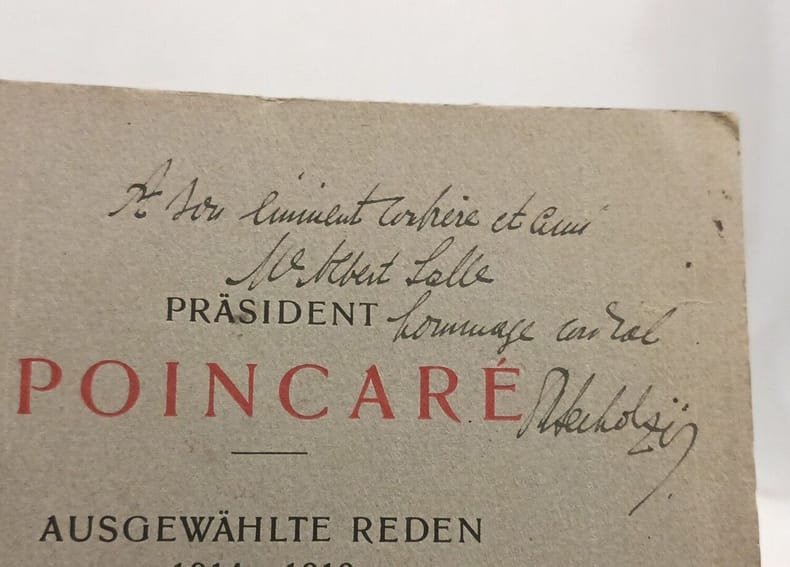 A son éminent confrère et ami
Me Albert Salle
PRÄSIDENT hommage cordial
POINCARÉ
AUSGEWÄHLTE REDEN
1914 - 1919